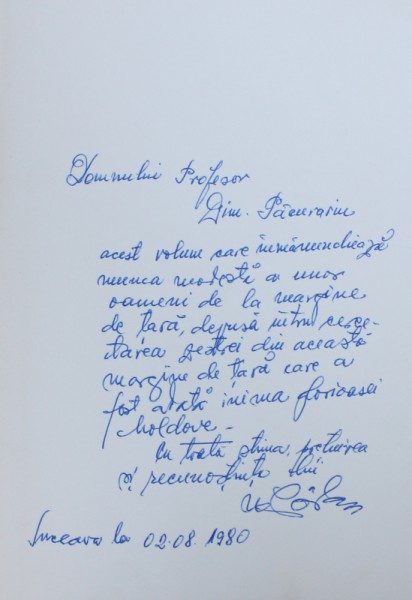 Domnului Profesor
Dim. Păcurariu
acest volum care înmănunchiază
munca modestă a unor
oameni de la margine
de țară, depusă întru cerce-
tarea zestrei din această
margine de țară care a
fost odată inima glorioasei
Moldove –
Cu toată stima, prețuirea
și recunoștința
Suceava la 02.08.1980